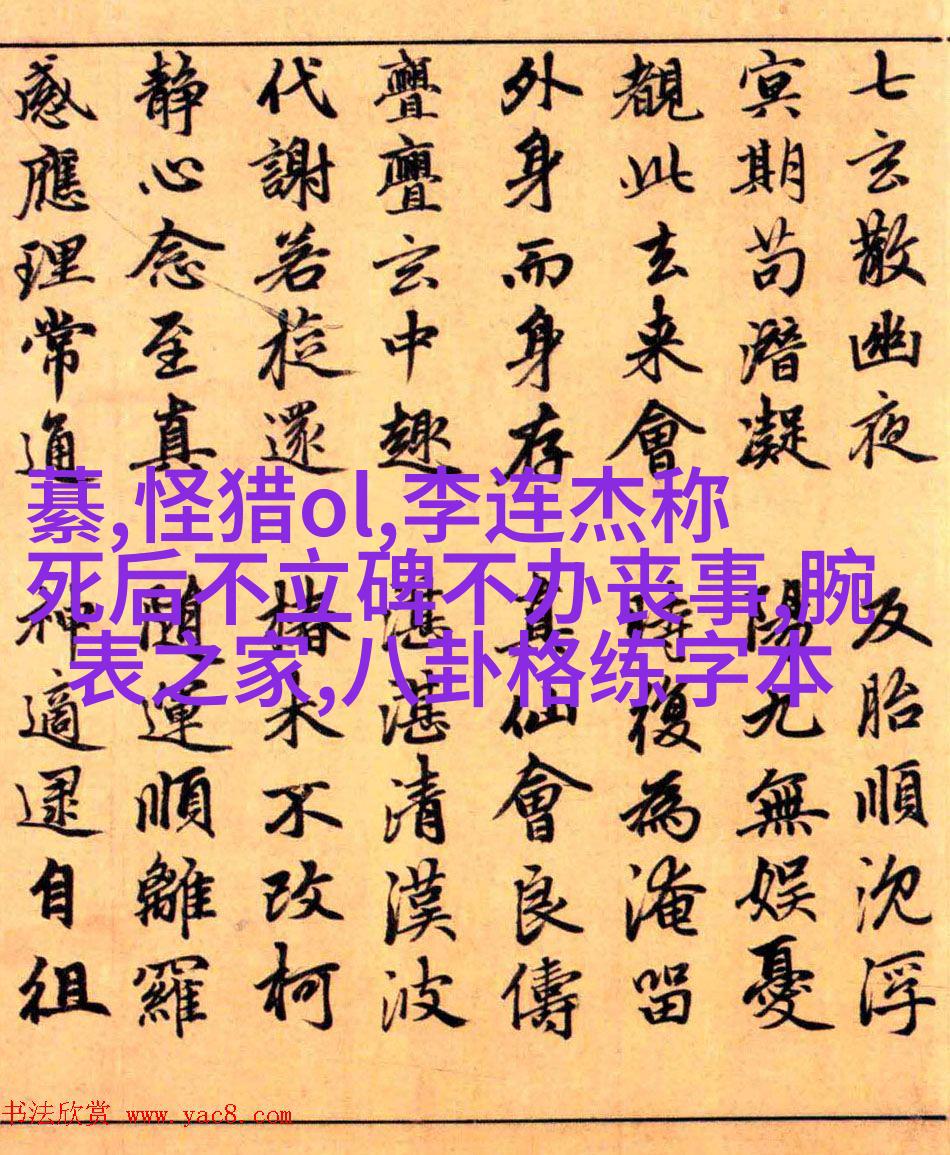 七玄散幽夜反胎順沈浮
冥期苟潛凝陽九無娛憂
觀此去來會時復為淹留
外身而身存真仙會良儔
亹亹玄中趣湛湛清漢波
代謝若旋還椿木不改柯
静心念至真隨運順離羅
感應理常通神適逯自徂
綦,怪猎ol,李连杰称
死后不立碑不办丧事,腕
表之家,八卦格练字本
书法欣赏 www.yac8.com